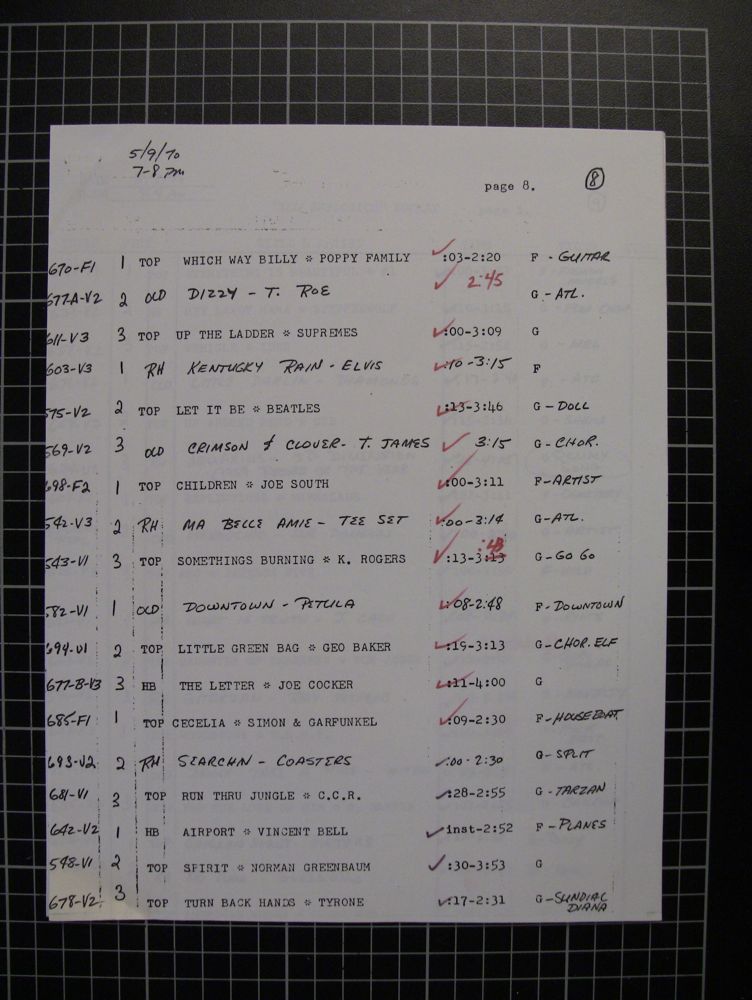 5/9/70
7-8 PM
page 8. 8
670-F1 1 TOP WHICH WAY BILLY * POPPY FAMILY :03-2:20 F - GUITAR
677A-V2 2 OLD DIZZY - T. ROE 2:45 G - ATL.
611-V3 3 TOP UP THE LADDER * SUPREMES :00-3:09 G
603-V3 1 RH KENTUCKY RAIN - ELVIS :10-3:15 F
575-V2 2 TOP LET IT BE * BEATLES :13-3:46 G - DOLL
569-V2 3 OLD CRIMSON & CLOVER - T. JAMES 3:15 G - CHOR.
698-F2 1 TOP CHILDREN * JOE SOUTH :00-3:11 F - ARTIST
542-V3 2 RH MA BELLE AMIE - TEE SET :00-3:14 G - ATL.
543-V1 3 TOP SOMETHINGS BURNING * K. ROGERS :13-3:13 :48 G - GO GO
582-V1 1 OLD DOWNTOWN - PETULA :08-2:48 F - DOWNTOWN
694-V1 2 TOP LITTLE GREEN BAG * GEO BAKER :19-3:13 G - CHOR. ELF
677-B-V3 3 HB THE LETTER * JOE COCKER :11-4:00 G
685-F1 1 TOP CECELIA * SIMON & GARFUNKEL :09-2:30 F - HOUSEBOAT
693-V2 2 RH SEARCHN - COASTERS :00-2:30 G - SPLIT
681-V1 3 TOP RUN THRU JUNGLE * C.C.R. :28-2:55 G - TARZAN
642-V2 1 HB AIRPORT * VINCENT BELL inst-2:52 F - PLANES
548-V1 2 TOP SPIRIT * NORMAN GREENBAUM :30-3:53 G
678-V2 3 TOP TURN BACK HANDS * TYRONE :17-2:31 G - SUNDIAL
DIANA